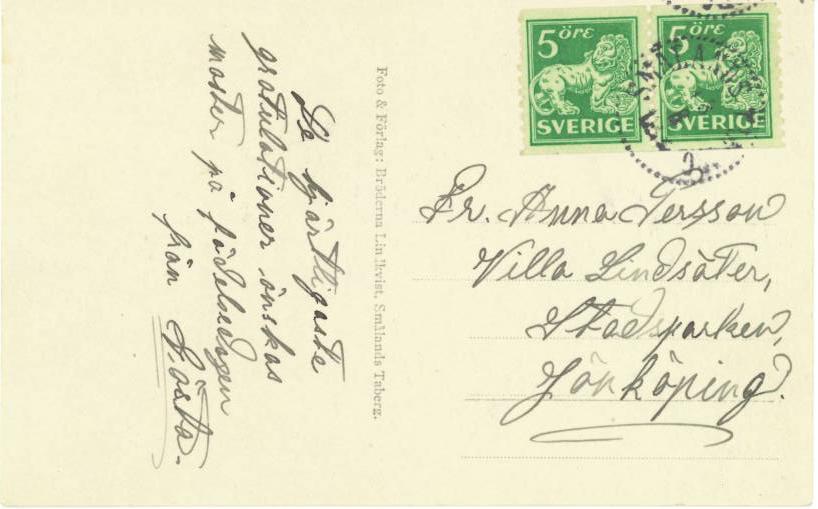 De hjärtligaste
gratulationer önskas
moster på födelsedagen
från Gösta.
Foto & Förlag: Bröderna Lindkvist, Smålands Taberg.
5 ÖRE
SVERIGE
5 ÖRE
SVERIGE
Fr. Anna Persson
Villa Lindsäter,
Stadsparken,
Jönköping.